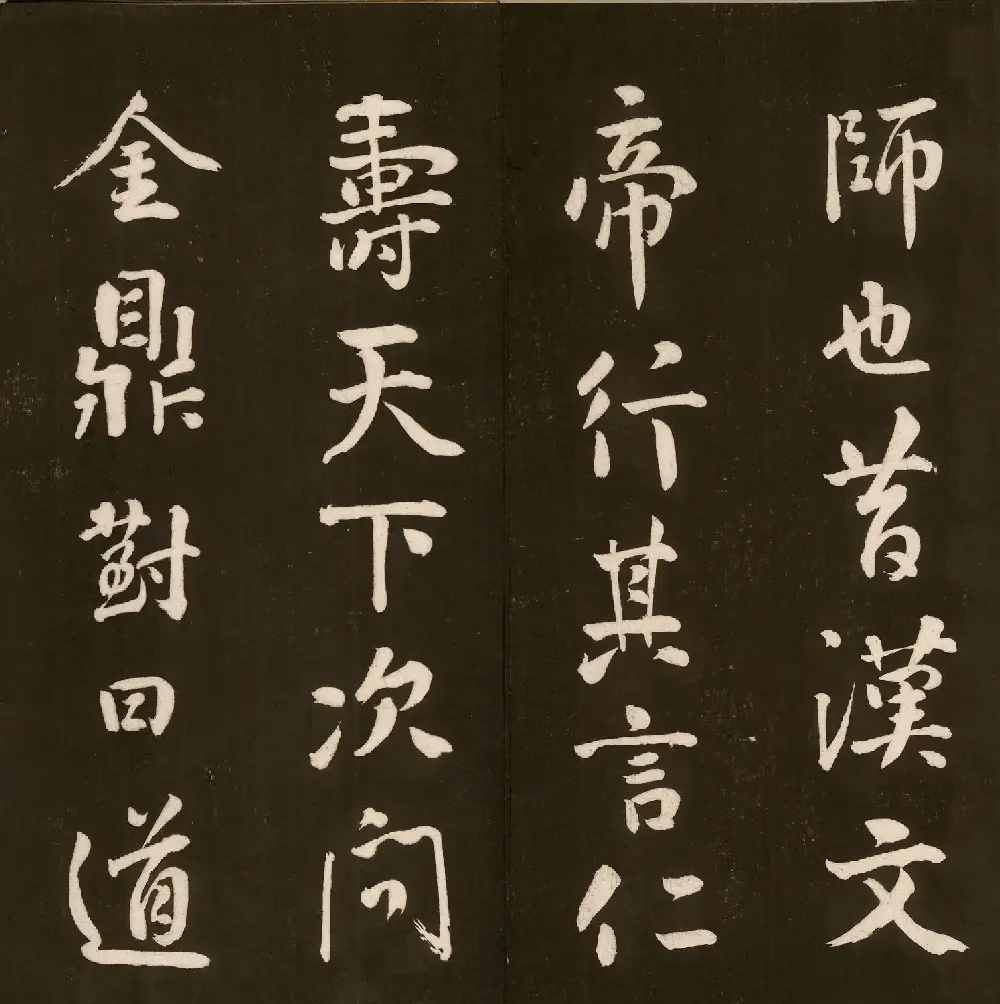 師也昔漢文
帝行其言仁
壽天下次問
金鼎對曰道